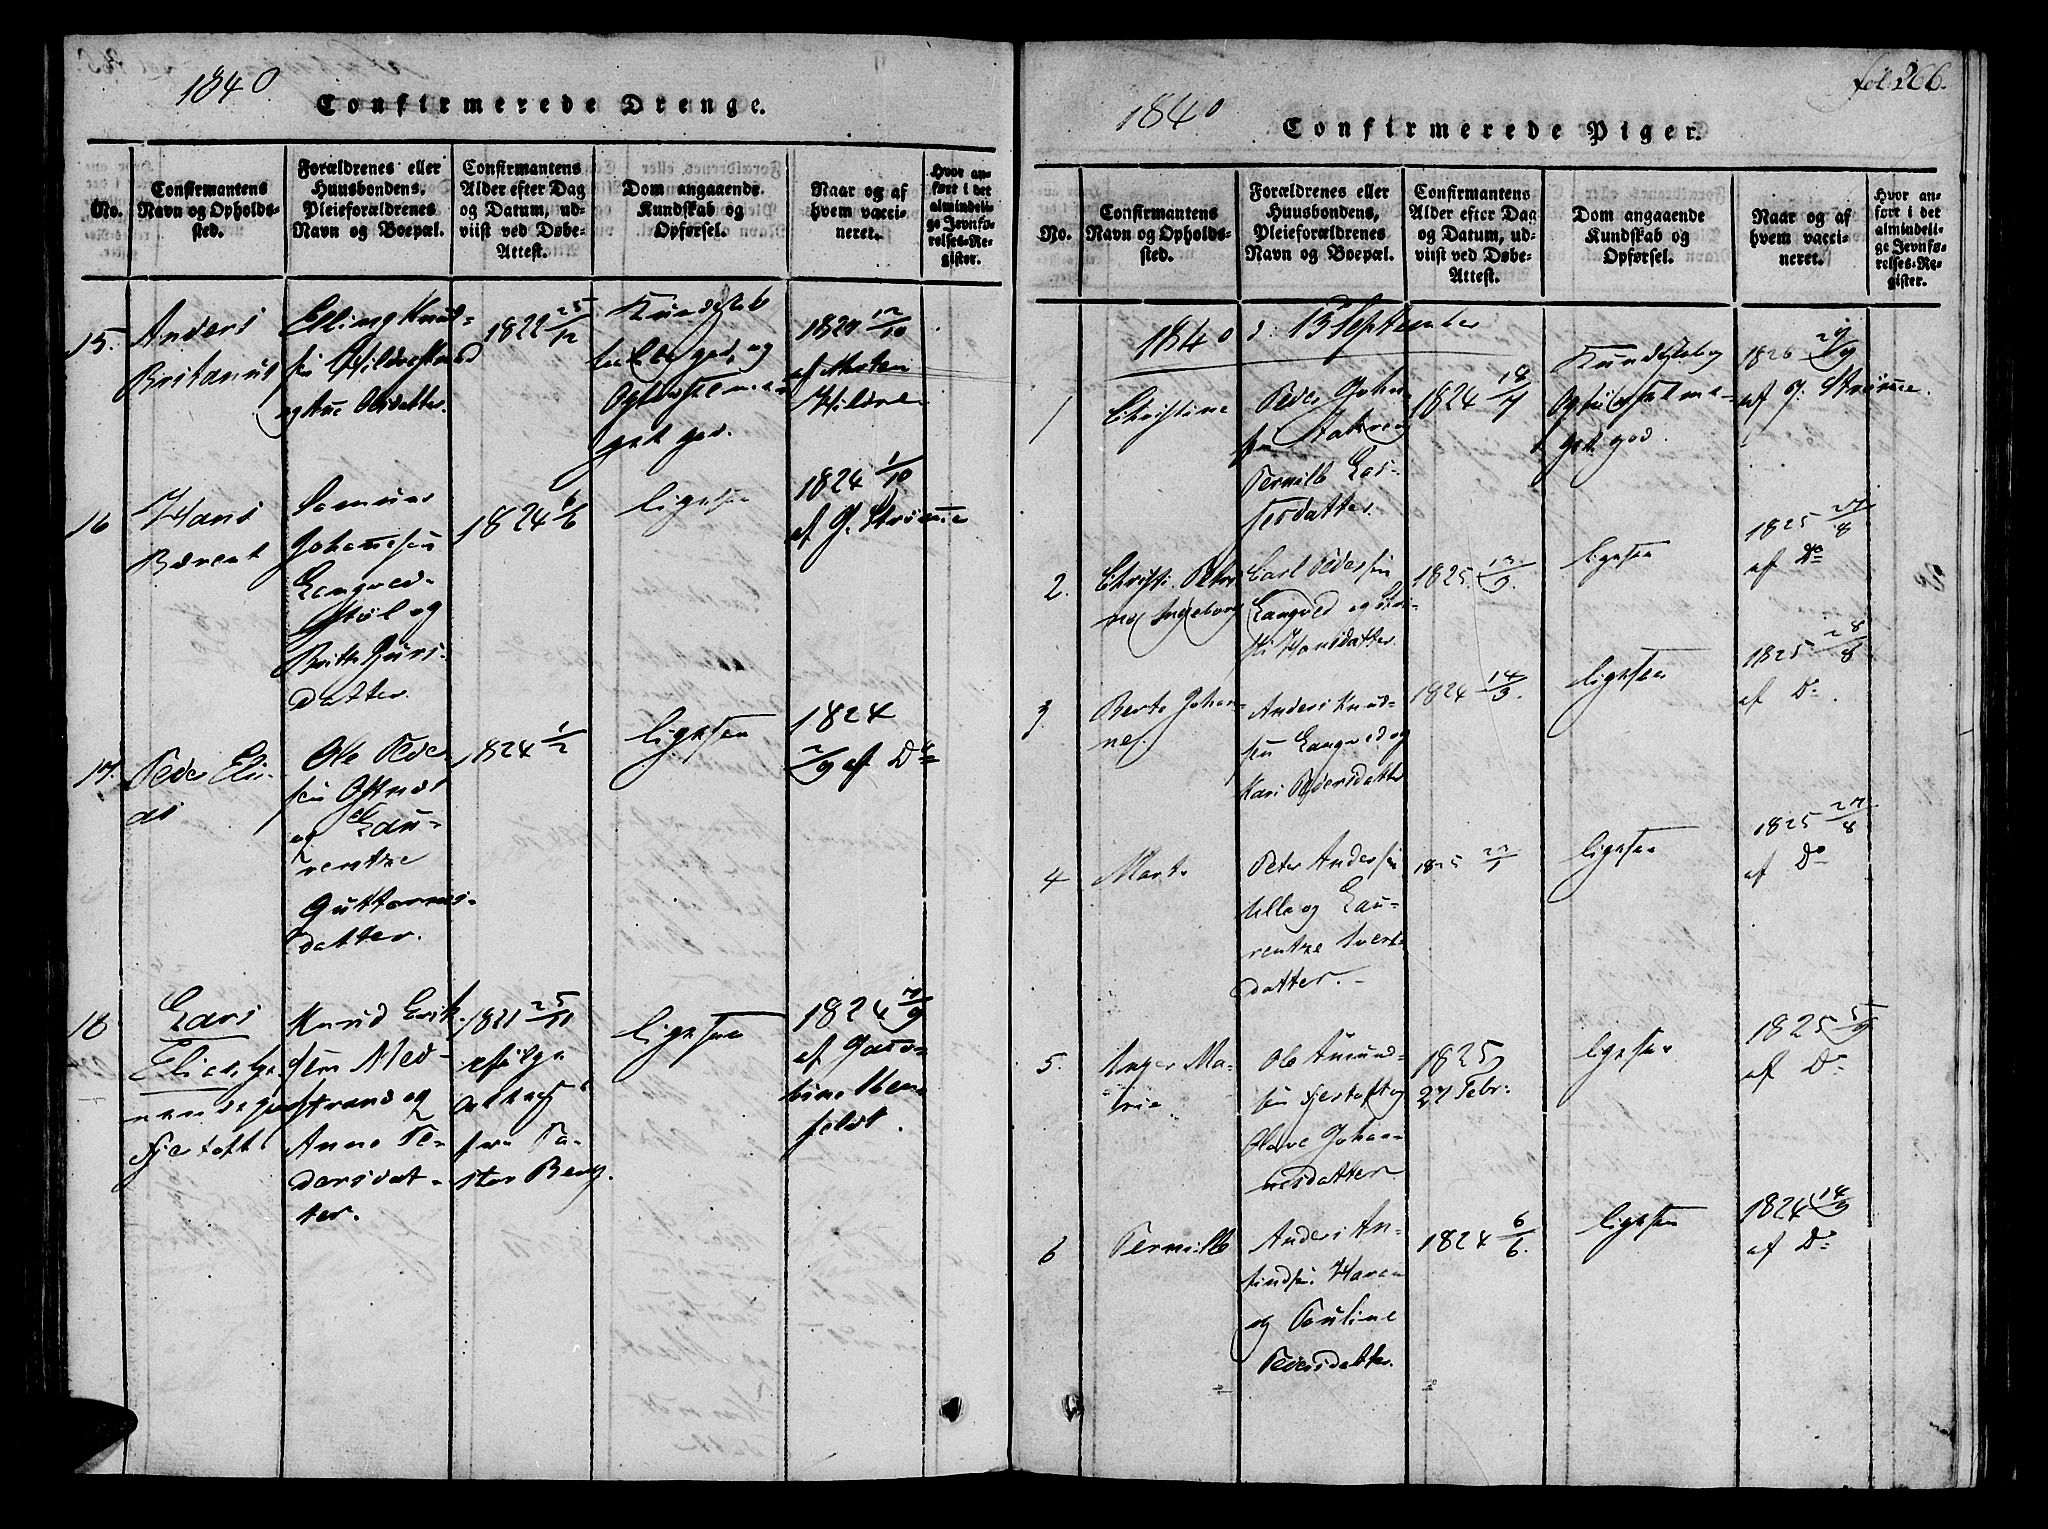 1840
Confirmerede Drenge.
No.
Confirmantens
Navn og Opholds-
sted.
Forældrenes eller
Huusbondens,
Pleieforældrenes
Navn og Boepæl.
Confirmantens
Alder efter Dag
og Datum, ud-
viist ved Døbe-
Attest.
Dom angaaende
Kundskab og
Opførsel.
Naar og af
hvem vacci-
neret.
Hvor an-
ført i det
almindeli-
ge Jevnfø-
relses-Re-
gister.
15.
Anders
Britanus
Elling Knud-
sen Hildrestrand
og Ane Olsdatter.
1822 25/12
Kundskab
god, og
Opførsel me-
get god.
1824 12/10
af Morten
Hildre
16
Hans
Berent
Rasmus
Johansen
Langved-
støl og
Britte Giurs-
datter.
1824 6/6
ligesaa
1824 1/10
af G. Strømme
17.
Peder Eli-
as
Ole Peder-
sen Ostnes
og Lau-
rentze
Guttorms-
datter.
1824 1/2
ligesaa
1824
2/9 af Do
18
Lars
Elias
Fjertoft
Knud Erik-
sen Med-
strand og
Anne Pe-
dersdat-
ter.
1821 25/11
ifølge
Attest
fra Pa-
stor Berg.
ligesaa
1824 7/9
af Jaco-
bine Ilen-
feldt.
fol: 266.
1840
Confirmerede Piger.
No.
Confirmantens
Navn og Opholds-
sted.
Forældrenes eller
Huusbondens,
Pleieforældrenes
Navn og Boepæl.
Confirmantens
Alder efter Dag
og Datum, ud-
viist ved Døbe-
Attest.
Dom angaaende
Kundskab og
Opførsel.
Naar og af
hvem vacci-
neret.
Hvor an-
ført i det
almindeli-
ge Jevnfø-
relses-Re-
gister.
1840 d: 13 September
1
Christine
Peder Johan-
sen
Pernille Las-
sesdatter.
1824 18/7
Kundskab og
Opførsel me-
get god.
1826 27/9
af G. Strømme.
2.
Christi. Petri-
ne Ingeborg
Carl Pedersen
Langved og Chri-
sti Hansdatter.
1825 13/3.
ligesaa
1825 27/8
af Do
3
Berte Johan-
ne.
Anders Knud-
sen Langved og
Kari Pedersdatter
1824 14/3.
ligesaa
1825 28/8
af Do.
4
Marte
Peter Andersen
Ulla og Lau-
rentze Ivers-
datter.-
1825 22/1
ligesaa
1825 27/8
af Do
5.
Inger Ma-
rie
Ole Amund-
sen Fjertoft og
Olave Johan-
nesdatter.
1825
27 Febr:
ligesaa
1825 5/9
af Do
6
Pernille
Anders An-
Haren
og Pauline
Pedersdatter.
1824 6/6.
ligesaa
1824 14/9
af Do